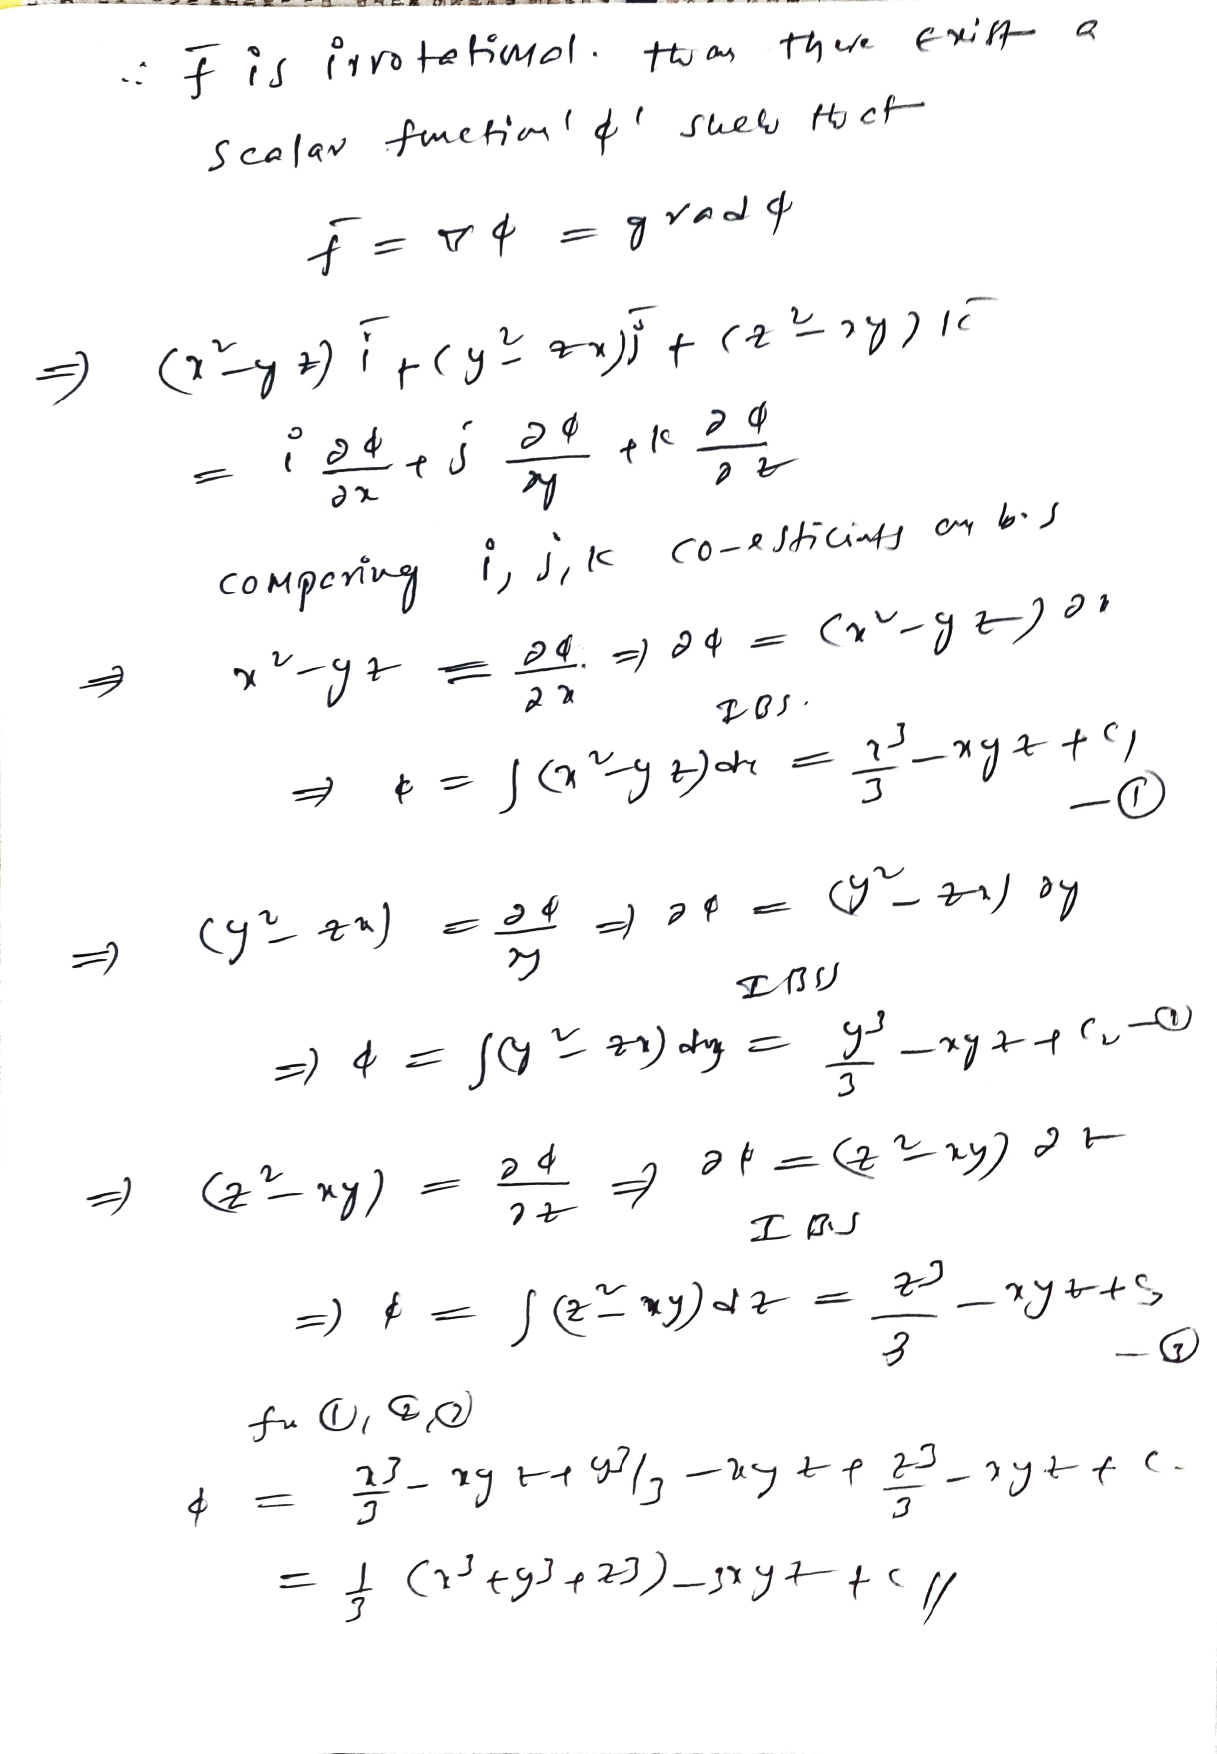 ∴ f̄ is irrotational. then there exist a
scalar function 'ϕ' such that
f̄ = ∇ϕ = grad ϕ
⇒ (x²-yz) ī + (y²-zx) j̄ + (z²-xy) k̄
= i ∂ϕ/∂x + j ∂ϕ/∂y + k ∂ϕ/∂z
comparing i, j, k co-efficients on b.s
⇒ x²-yz = ∂ϕ/∂x ⇒ ∂ϕ = (x²-yz) ∂x
IBS.
⇒ ϕ = ∫(x²-yz)dx = x³/3 - xyz + c₁ - ①
⇒ (y²-zx) = ∂ϕ/∂y ⇒ ∂ϕ = (y²-zx) ∂y
IBS
⇒ ϕ = ∫(y²-zx) dy = y³/3 - xyz + c₂ - ②
⇒ (z²-xy) = ∂ϕ/∂z ⇒ ∂ϕ = (z²-xy) ∂z
IBS
⇒ ϕ = ∫(z²-xy)dz = z³/3 - xyz + c₃ - ③
①, ②, ③
ϕ = x³/3 - xyz + y³/3 - xyz + z³/3 - xyz + c.
= 1/3 (x³+y³+z³) - 3xyz + c //